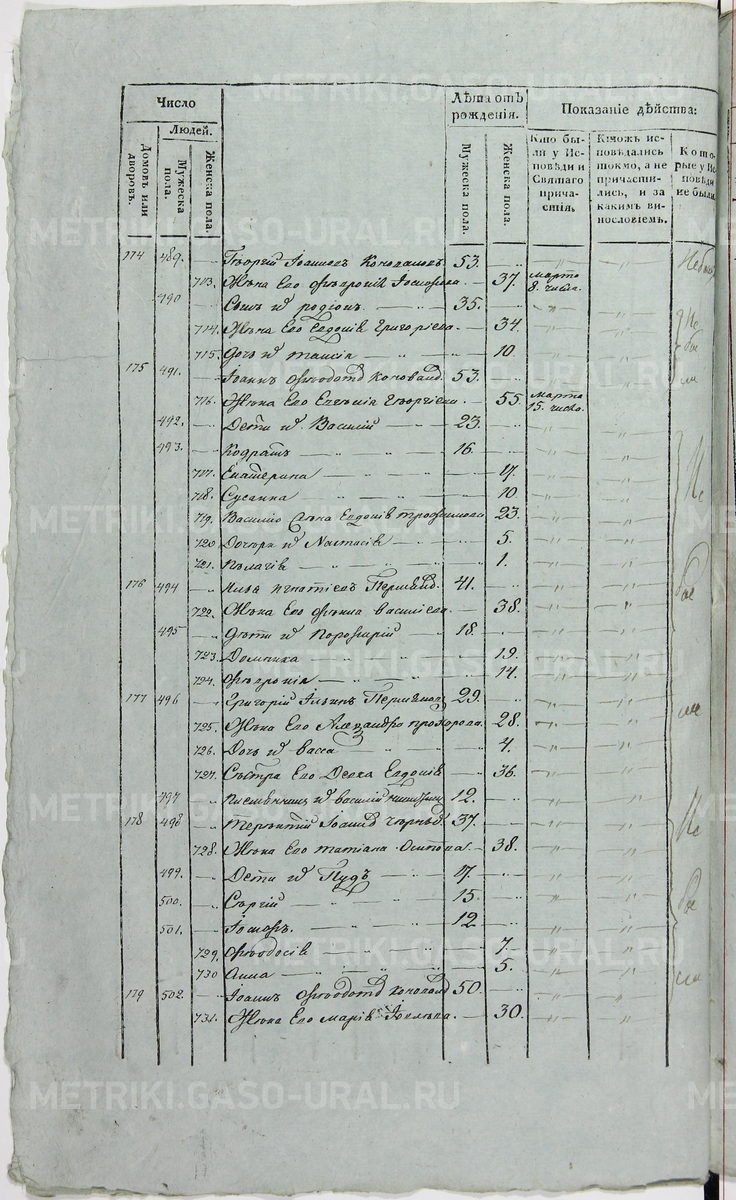 Число
Людей.
Домовъ или дворовъ.
Мужеска пола.
Женска пола.
Лѣта отъ рожденія.
Мужеска пола.
Женска пола.
Показаніе дѣйства:
Кто были у Исповѣди и Святаго причастія.
Ктожъ исповѣдались токмо, а не причастились, и за какимъ винословіемъ.
Которые у Исповѣди не были
174 489. Георгій Іоанновъ Коноваловъ 53.
713. Жена Его Іосифова 37. марта 8. числа.
490 Сынъ и Родіонъ 35.
714. Жена Его Евдокія Григоріева 34.
715. Дочь и Таисія 10.
175 491. Іоаннъ Коновалов 53.
716. Жена Его Евгенія Георгіева 55. марта 15. числа.
492. Дети и Василій 23.
493. Кодратъ 16.
717. Екатерина 17.
718. Сусанна 10
719. Василія Жена Евдокія Трофимова 23.
720 Дочери и Настасія 5.
721. Пелагія 1.
176 494 Илья Игнатіевъ 41.
722. Жена Его Фекла Василіева 38.
495 Дѣти и Порфирій 18.
723. Домника 19.
724. Февронія 14.
177 496 Григорій Ильинъ 29.
725. Жена Его Александра Прохорова 28.
726. Дочь и Васса 4.
727. Сестра Его Девка Евдокія 36.
497 и Василій 12.
178 498 Терентій 37.
728. Жена Его Татіана Осипова 38.
499. Дети и Пудъ 17.
500. Сергій 15.
501. 12
729. Феодосія 7.
730 Анна 5.
179 502. Іоаннъ Коновалов 50.
731. Жена Его Марія 30.
METRIKI.GASO-URAL.RU